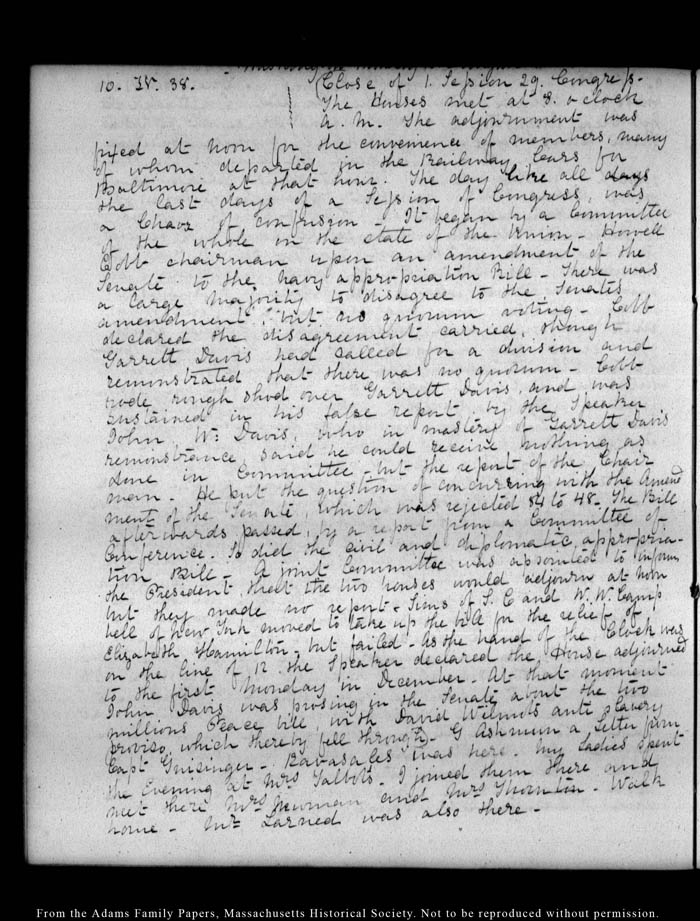 10. IV. 38. (Close of 1. Session 29. Congress.
The Houses met at 8. o clock
a. m. The adjournment was
fixed at Noon for the convenience of members, many
of whom departed in the Railway Cars for
Baltimore at that hour. The day like all days
the last days of a Session of Congress, was
a Chaos of confusion. It began by a Committee
of the whole on the state of the Union - Howell
Cobb chairman upon an amendment of the
Senate to the navy appropriation Bill - There was
a large majority to disagree to the Senates
amendment, but no quorum voting - Cobb
declared the disagreement carried, though
Garrett Davis had called for a division and
remonstrated that there was no quorum - Cobb
rode rough shod over Garrett Davis, and was
sustained in his false report by the Speaker
John W. Davis, who in mastery of Garrett Davis
remonstrance, said he could receive nothing as
done in Committee - but the report of the Chair
man. He put the question of concurring with the Amend
ment of the Senate, which was rejected 84 to 48. The Bill
afterwards passed, by a report from a Committee of
Conference. So did the civil and diplomatic appropria-
tion Bill - A joint Committee was appointed to inform
the President that the two houses would adjourn at Noon
but they made no report - Sims of S. C and W. W. Camp
bell of New York moved to take up the bill for the relief of
Elizabeth Hamilton, but failed - As the hand of the Clock was
on the line of 12 the Speaker declared the House adjourned
to the first Monday in December. At that moment
John Davis was prosing in the Senate about the two
millions Peace bill, with David Wilmots anti slavery
proviso, which thereby fell through). G Ashmun a Letter from
Capt Guisinger - Ravasales was here. My Ladies spent
the Evening at Mrs Talbots. I joined them there and
met there Mrs Newman and Mrs Thornton. Walk
home - Mr Larned was also there -
From the Adams Family Papers, Massachusetts Historical Society. Not to be reproduced without permission.